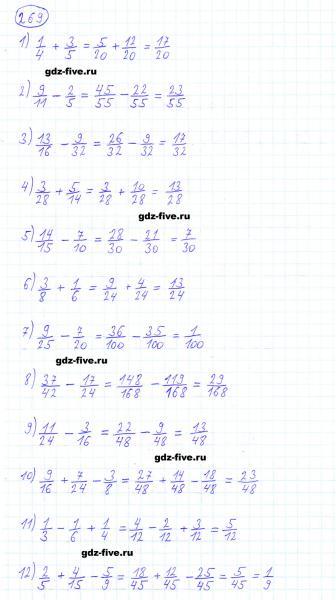 269
1) 1/4 + 3/5 = 5/20 + 12/20 = 17/20
gdz-five.ru
2) 9/11 - 2/5 = 45/55 - 22/55 = 23/55
3) 13/16 - 9/32 = 26/32 - 9/32 = 17/32
4) 3/28 + 5/14 = 3/28 + 10/28 = 13/28
gdz-five.ru
5) 14/15 - 7/10 = 28/30 - 21/30 = 7/30
6) 3/8 + 1/6 = 9/24 + 4/24 = 13/24
7) 9/25 - 7/20 = 36/100 - 35/100 = 1/100
gdz-five.ru
8) 37/42 - 17/24 = 148/168 - 119/168 = 29/168
9) 11/24 - 3/16 = 22/48 - 9/48 = 13/48
gdz-five.ru
10) 9/16 + 7/24 - 3/8 = 27/48 + 14/48 - 18/48 = 23/48
11) 1/3 - 1/6 + 1/4 = 4/12 - 2/12 + 3/12 = 5/12
gdz-five.ru
12) 2/5 + 4/15 - 5/9 = 18/45 + 12/45 - 25/45 = 5/45 = 1/9